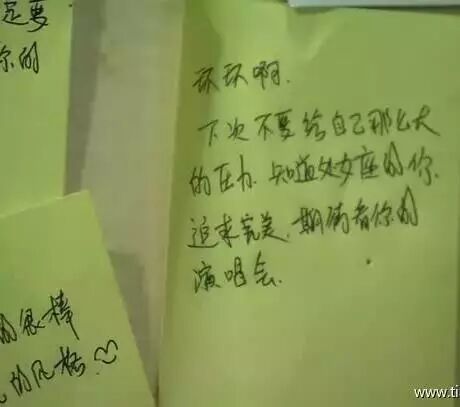 定要
你的
环环啊.
下次不要给自己那么大
的压力.知道处女座的你.
追求完美.期待着你的
演唱会.
的很棒
的风格.♡
www.ti